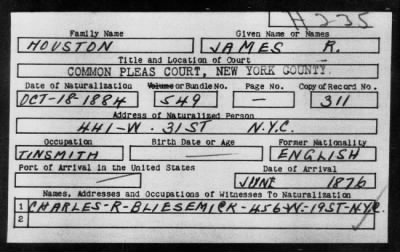 H 235
Family Name Given Name or Names
HOUSTON JAMES R.
Title and Location of Court
COMMON PLEAS COURT, NEW YORK COUNTY.
Date of Naturalization Volume or Bundle No. Page No. Copy of Record No.
OCT-18-1884 549 — 311
Address of Naturalized Person
441-W. 31ST N.Y.C.
Occupation Birth Date or Age Former Nationality
TINSMITH — ENGLISH
Port of Arrival in the United States Date of Arrival
— JUNE 1876
Names, Addresses and Occupations of Witnesses To Naturalization
1 CHARLES-R-BLIESEMICK-456-W-19ST-N.Y.C.
2